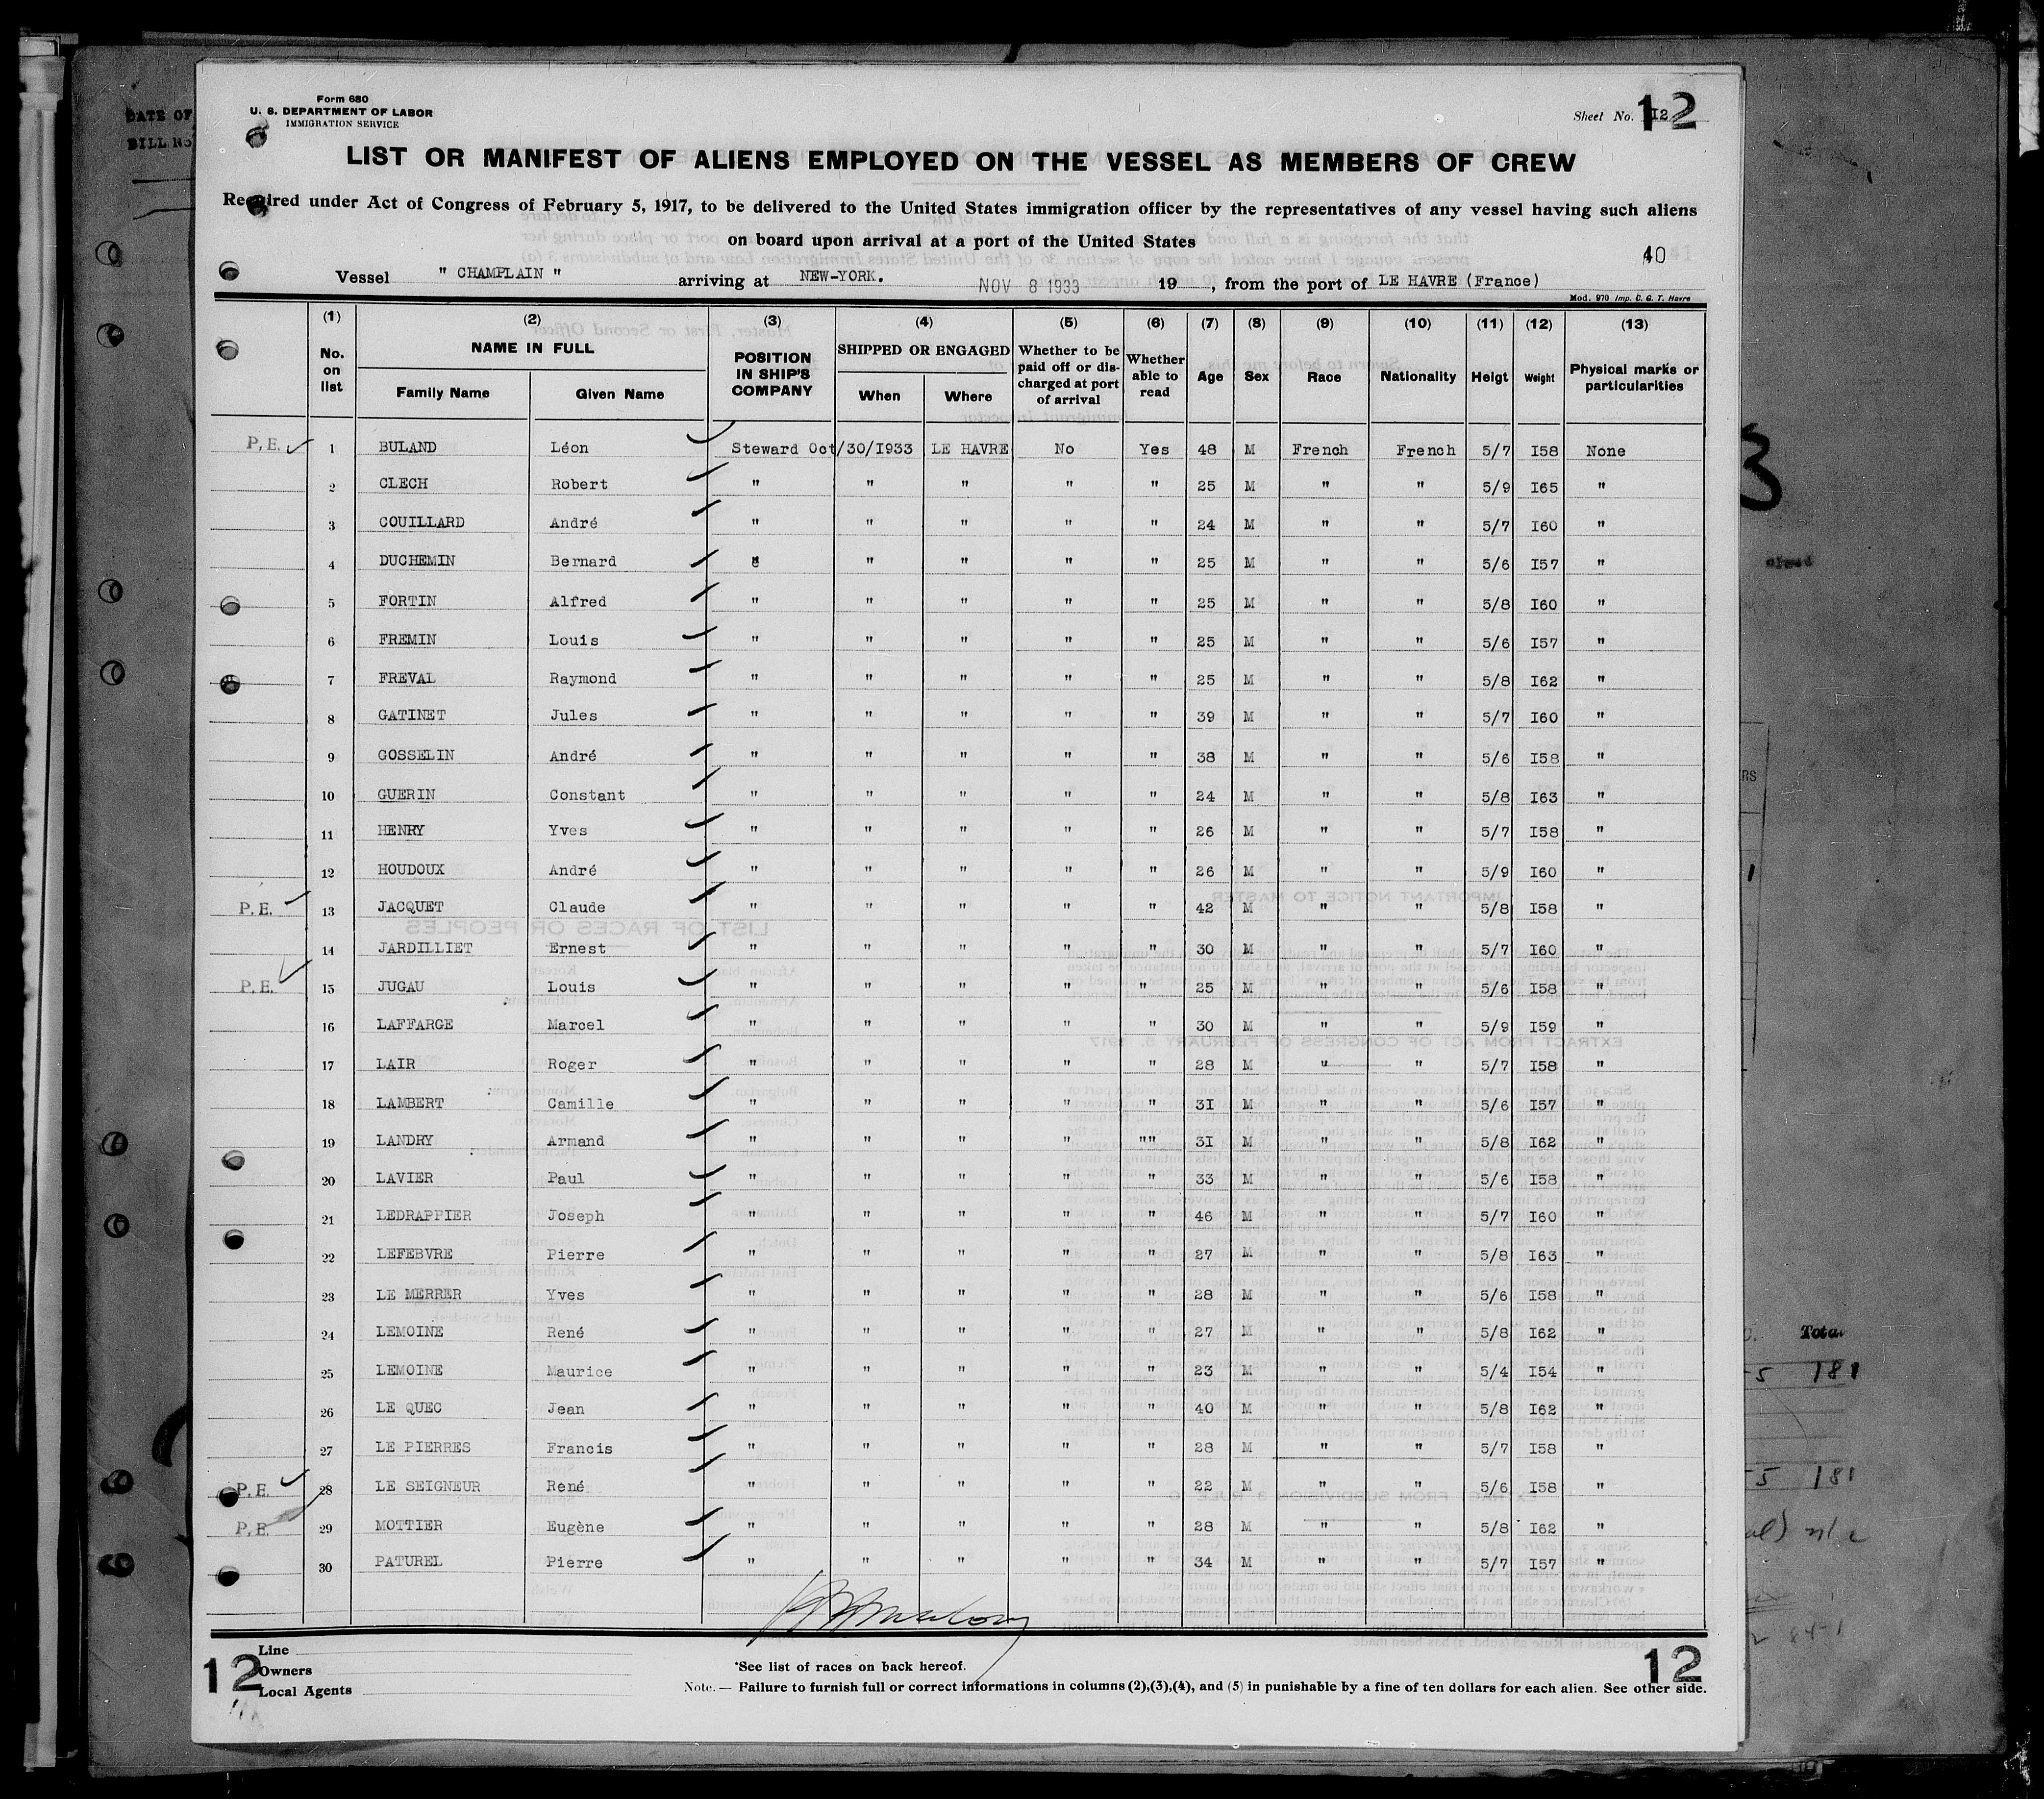 Form 680
U. S. DEPARTMENT OF LABOR
IMMIGRATION SERVICE
Sheet No. I2 12
LIST OR MANIFEST OF ALIENS EMPLOYED ON THE VESSEL AS MEMBERS OF CREW
Required under Act of Congress of February 5, 1917, to be delivered to the United States immigration officer by the representatives of any vessel having such aliens
on board upon arrival at a port of the United States
10
Vessel " CHAMPLAIN " arriving at NEW-YORK. NOV 8 1933 19 , from the port of LE HAVRE (France)
Mod. 970 Imp. C. G. T. Havre
(1) (2) (3) (4) (5) (6) (7) (8) (9) (10) (11) (12) (13)
No. on list NAME IN FULL Family Name Given Name POSITION IN SHIP'S COMPANY SHIPPED OR ENGAGED When Where Whether to be paid off or discharged at port of arrival Whether able to read Age Sex Race Nationality Heigt Weight Physical marks or particularities
P.E. 1 BULAND Léon Steward Oct/30/I933 LE HAVRE No Yes 48 M French French 5/7 I58 None
2 CLECH Robert " " " " " 25 M " " 5/9 I65 "
3 COUILLARD André " " " " " 24 M " " 5/7 I60 "
4 DUCHEMIN Bernard " " " " 25 M " " 5/6 I57 "
5 FORTIN Alfred " " " " " 25 M " " 5/8 I60 "
6 FREMIN Louis " " " " " 25 M " " 5/6 I57 "
7 FREVAL Raymond " " " " " 25 M " " 5/8 I62 "
8 GATINET Jules " " " " " 39 M " " 5/7 I60 "
9 GOSSELIN André " " " " " 38 M " " 5/6 I58 "
10 GUERIN Constant " " " " " 24 M " " 5/8 I63 "
11 HENRY Yves " " " " " 26 M " " 5/7 I58 "
12 HOUDOUX André " " " " " 26 M " " 5/9 I60 "
P.E. 13 JACQUET Claude " " " " " 42 M " " 5/8 I58 "
14 JARDILLIET Ernest " " " " " 30 M " " 5/7 I60 "
P.E. 15 JUGAU Louis " " " " " 25 M " " 5/6 I58 "
16 LAFFARGE Marcel " " " " " 30 M " " 5/9 I59 "
17 LAIR Roger " " " " " 28 M " " 5/7 I58 "
18 LAMBERT Camille " " " " " 3I M " " 5/6 I57 "
19 LANDRY Armand " " " " "" 3I M " " 5/8 I62 "
20 LAVIER Paul " " " " " 33 M " " 5/6 I58 "
21 LEDRAPPIER Joseph " " " " " 46 M " " 5/7 I60 "
22 LEFEBVRE Pierre " " " " " 27 M " " 5/8 I63 "
23 LE MERRER Yves " " " " " 28 M " " 5/6 I58 "
24 LEMOINE René " " " " " 27 M " " 5/8 I62 "
25 LEMOINE Maurice " " " " " 23 M " " 5/4 I54 "
26 LE QUEC Jean " " " " " 40 M " " 5/8 I62 "
27 LE PIERRES Francis " " " " " 28 M " " 5/7 I58 "
P.E. 28 LE SEIGNEUR René " " " " " 22 M " " 5/6 I58 "
P.E. 29 MOTTIER Eugène " " " " " 28 M " " 5/8 I62 "
30 PATUREL Pierre " " " " " 34 M " " 5/7 I57 "
Line
Owners
Local Agents
12
*See list of races on back hereof.
Note.— Failure to furnish full or correct informations in columns (2),(3),(4), and (5) in punishable by a fine of ten dollars for each alien. See other side.
12
DATE OF
BILL No
3
Total
5 181
5 181